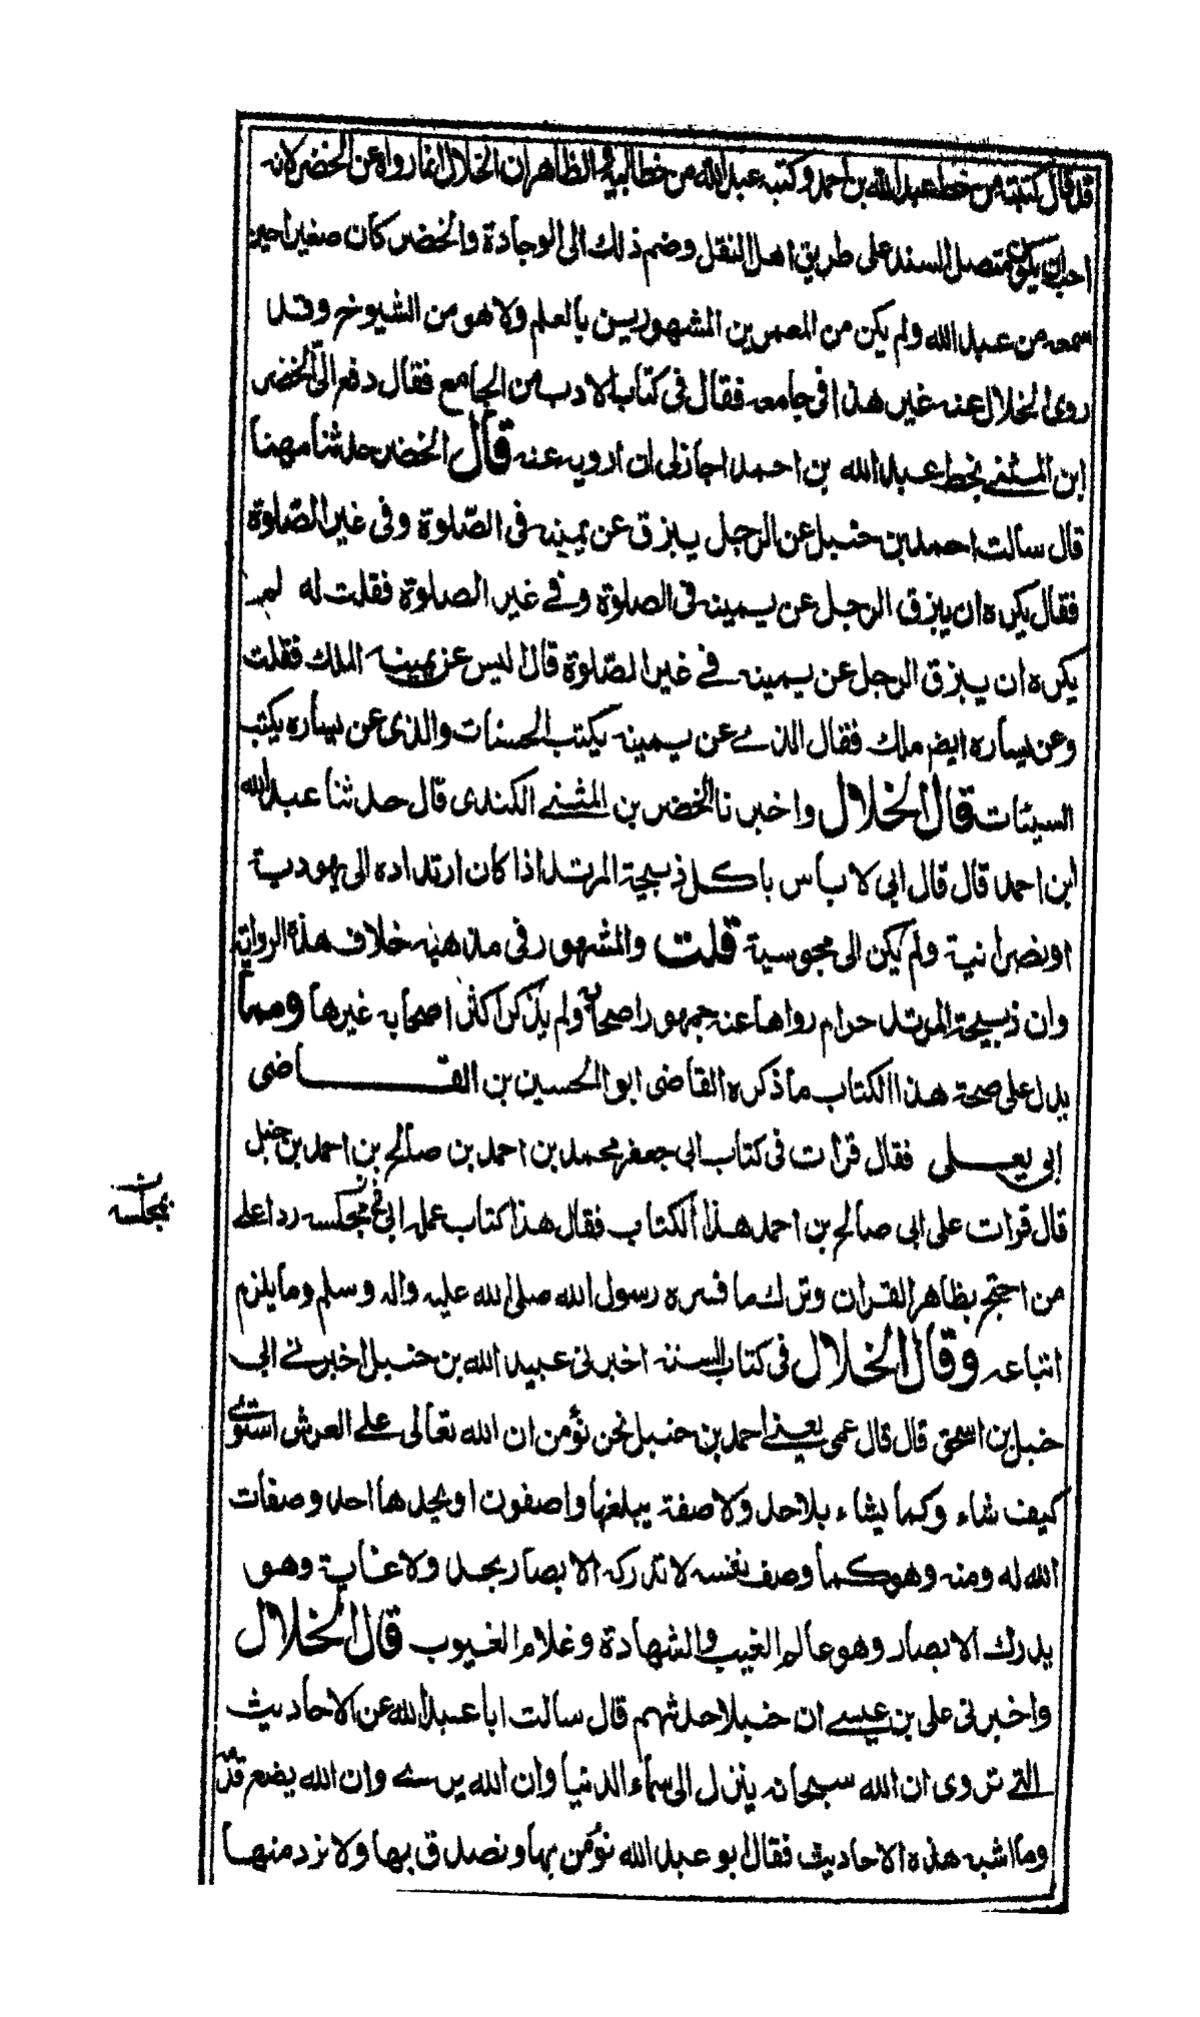 قد قال كتبته من خط عبد الله بن احمد وكتبه عبد الله من خط ابيه والظاهر ان الخلال انما رواه عن الخضر لانه
احب ان يكون متصل السند على طريق اهل النقل وضم ذلك الى الوجادة والخضر كان صغيرا حين
سمعه من عبد الله ولم يكن من المعمرين المشهورين بالعلم ولا هو من الشيوخ وقد
روى الخلال عنه غير هذا فى جامعه فقال فى كتاب الادب من الجامع فقال دفع الىّ الخضر
ابن المثنے بخط عبد الله بن احمد اجازلى ان ارويه عنه قال الخضر حدثنا مهنا
قال سألت احمد بن حنبل عن الرجل يبزق عن يمينه فى الصّلوة وفى غير الصّلوة
فقال يكره ان يبزق الرجل عن يمينه فى الصلوة وفے غير الصلوة فقلت له لم
يكره ان يبزق الرجل عن يمينه فے غير الصّلوة قال اليس عن يمينه الملك فقلت
وعن يساره ايضا ملك فقال الذے عن يمينه يكتب الحسنات والذى عن يساره يكتب
السيئات قال الخلال واخبرنا الخضر بن المثنے الكندى قال حدثنا عبد الله
ابن احمد قال قال ابى لا بأس باكل ذبيحة المرتد اذا كان ارتداده الى يهودية
او نصرانية ولم يكن الى مجوسية قلت والمشهور فى مذهبه خلاف هذه الرواية
وان ذبيحة المرتد حرام رواها عنه جمهور اصحابه ولم يذكر اكثر اصحابه غيرها ومما
يدل على صحة هذا الكتاب ما ذكره القاضى ابو الحسين بن القـــاضى
ابى يعلى فقال قرات فى كتاب ابى جعفر محمد بن احمد بن صالح بن احمد بن حنبل
قال قرات على ابى صالح بن احمد هذا الكتاب فقال هذا كتاب عمله ابى فى مجلسه ردا على
بمجلسه ن
من احتج بظاهر القران وترك ما فسره رسول الله صلى الله عليه واله وسلم وما يلزم
اتباعه وقال الخلال فى كتاب السنة اخبرنى عبيد الله بن حنبل اخبرنے ابى
حنبل بن اسحق قال قال عمى يعنے احمد بن حنبل نحن نؤمن ان الله تعالى علے العرش استوے
كيف شاء وكما يشاء بلا حد ولا صفة يبلغها واصفون او يحدها احد وصفات
الله له ومنه وهو كما وصف نفسه لا تدركه الابصار بحد ولا غاية وهو
يدرك الابصار وهو عالم الغيب والشهادة وعلام الغيوب قال الخلال
واخبرنى على بن عيسے ان حنبلا حدثهم قال سألت ابا عبد الله عن الاحاديث
التے تروى ان الله سبحانه ينزل الى سماء الدنيا وان الله يرے وان الله يضع قدمه
وما اشبه هذه الاحاديث فقال ابو عبد الله نؤمن بها ونصدق بها ولا نرد منها